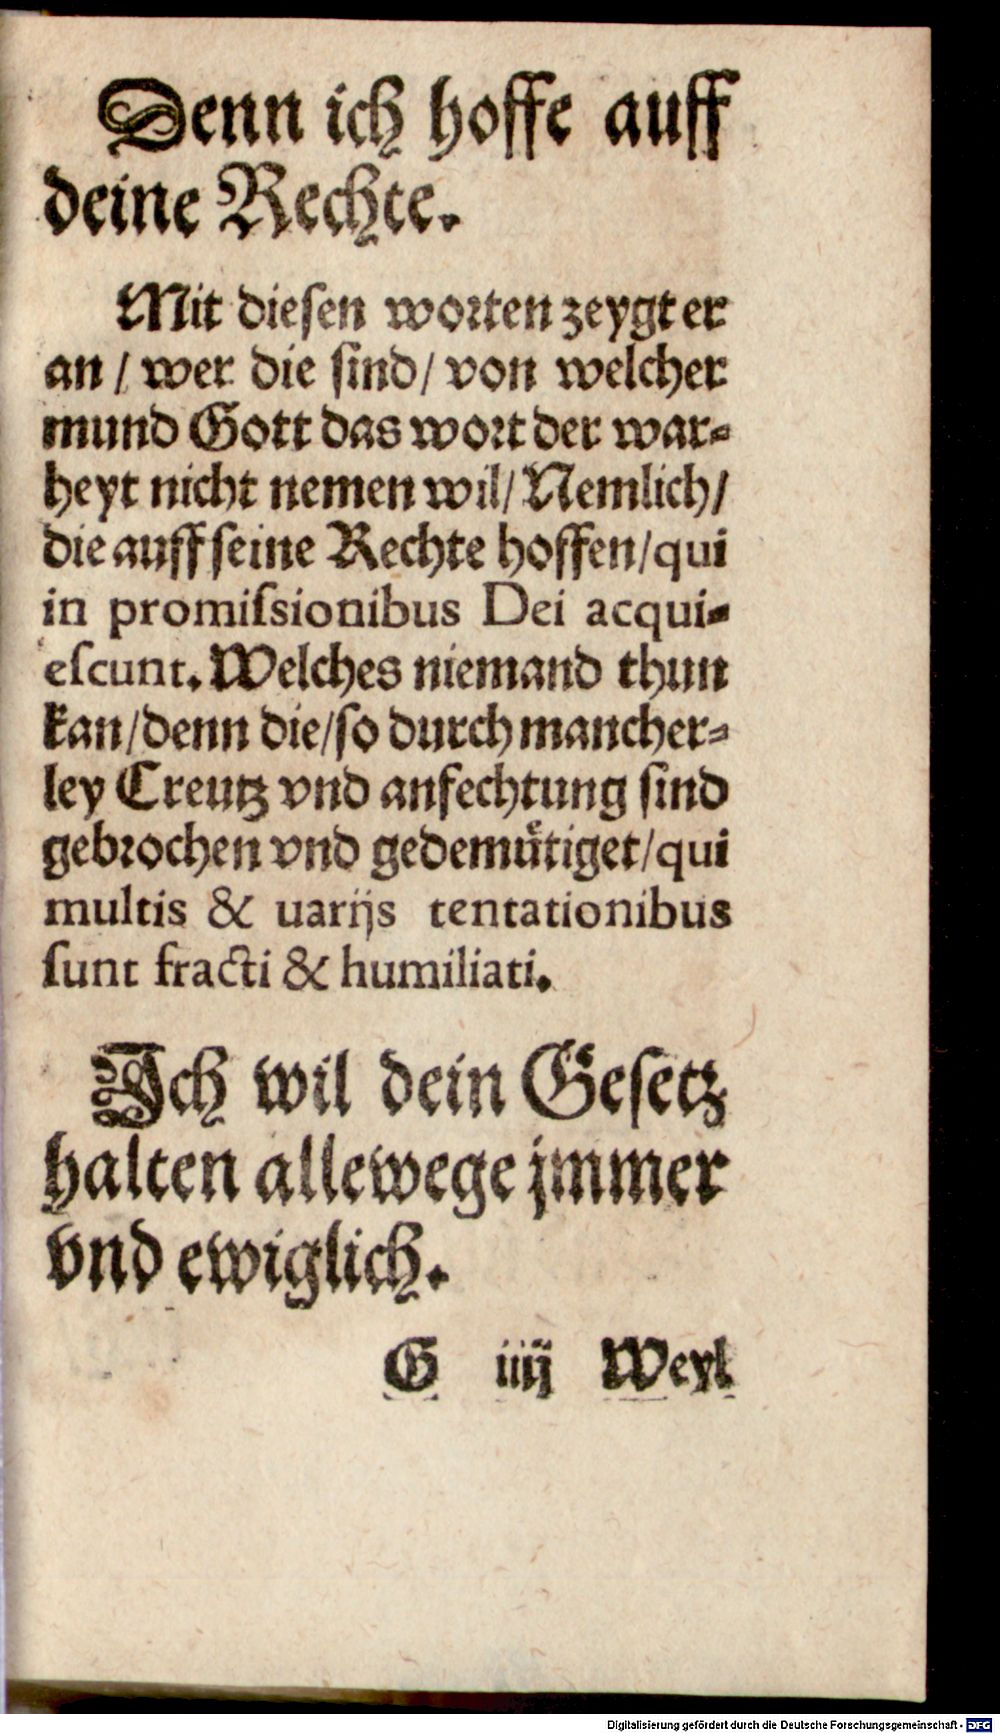 Denn ich hoffe auff
deine Rechte.
Mit diesen worten zeygt er
an / wer die sind / von welcher
mund Gott das wort der war⸗
heyt nicht nemen wil / Nemlich /
die auff seine Rechte hoffen / qui
in promiſsionibus Dei acqui⸗
eſcunt. Welches niemand thun
kan / denn die / so durch mancher⸗
ley Creutz vnd anfechtung sind
gebrochen vnd gedemuͤtiget / qui
multis & uarijs tentationibus
ſunt fracti & humiliati.
Ich wil dein Gesetz
halten allewege jmmer
vnd ewiglich.
G iiij Weyl
Digitalisierung gefördert durch die Deutsche Forschungsgemeinschaft - DFG